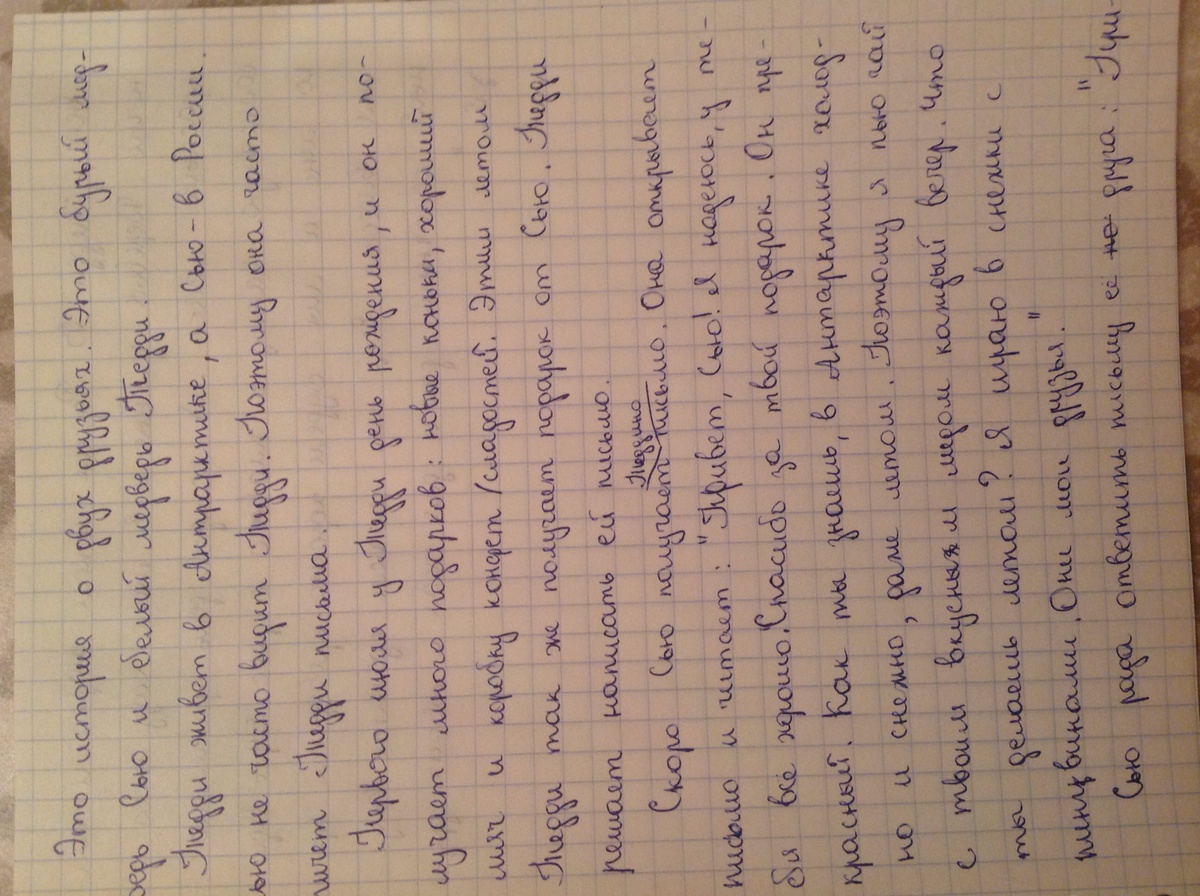 Это история о двух друзьях. Это бурый мед-
ведь Сью и белый медведь Тедди.
Тедди живет в Антрарктике, а Сью - в России.
Сью не часто видит Тедди. Поэтому она часто
пишет Тедди письма.
Первого июля у Тедди день рождения, и он по-
лучает много подарков: новые коньки, хороший
мяч и коробку конфет/сладостей. Этим летом
Тедди так же получает подарок от Сью. Тедди
решает написать ей письмо.
Скоро Сью получает Теддино письмо. Она открывает
письмо и читает: "Привет, Сью! Я надеюсь, у те-
бя всё хорошо. Спасибо за твой подарок. Он пре-
красный. Как ты знаешь, в Антарктике холод-
но и снежно, даже летом. Поэтому я пью чай
с твоим вкусным медом каждый вечер. Что
ты делаешь летом? Я играю в снежки с
пингвинами. Они мои друзья."
Сью рада ответить письму её друга: "При-